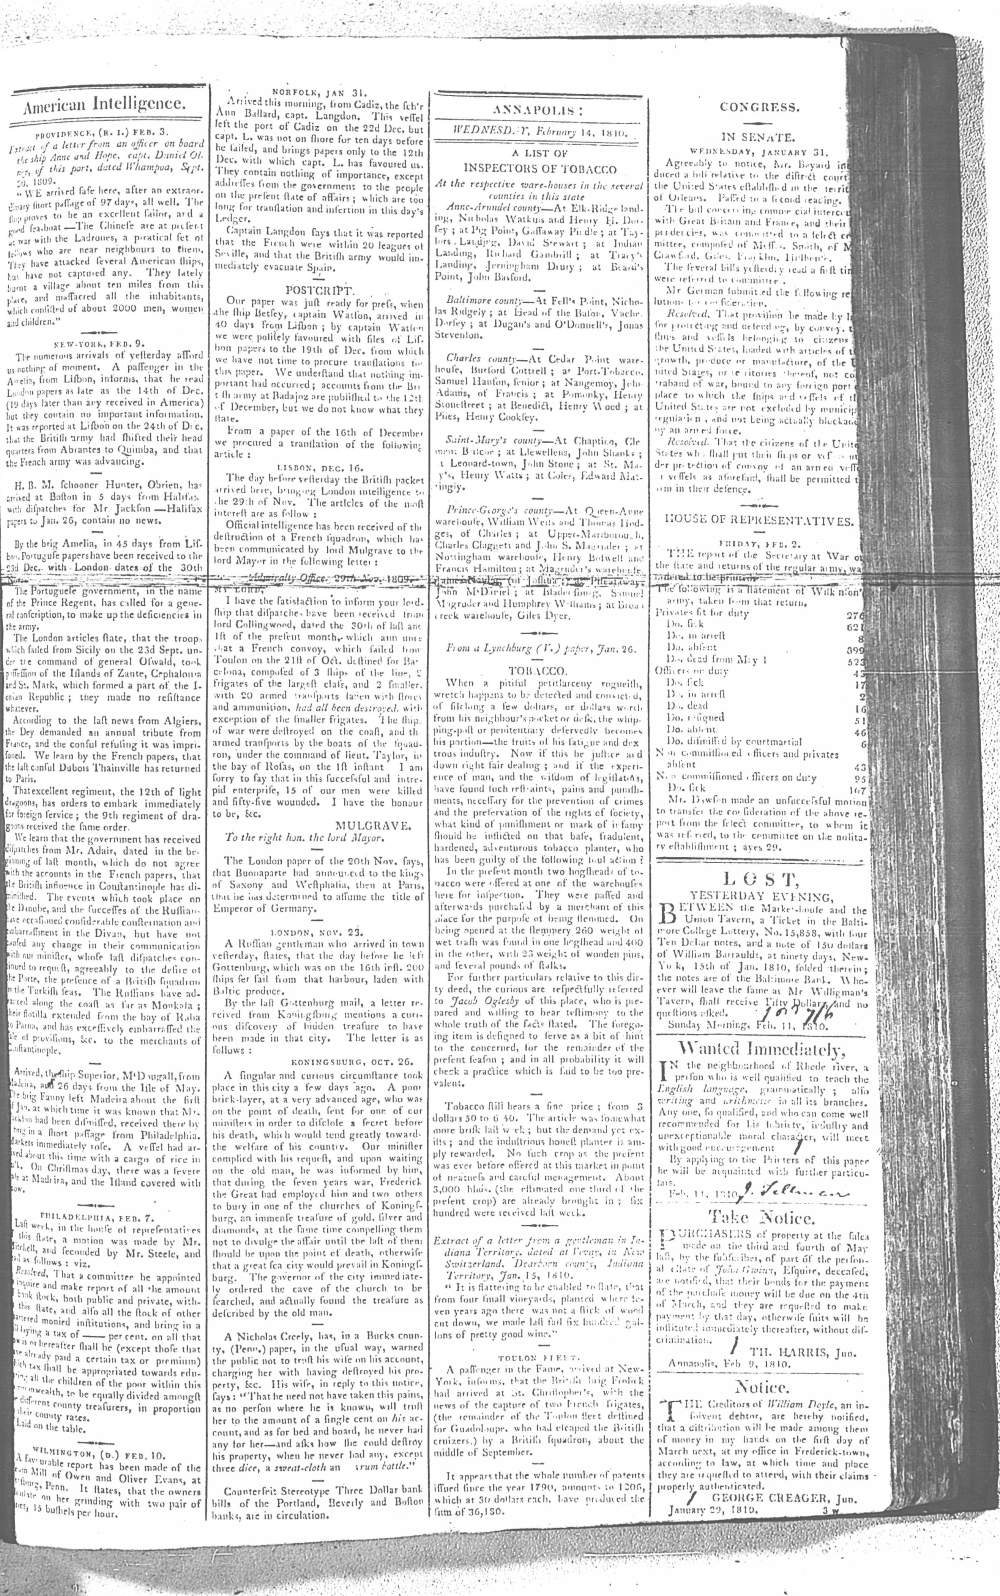 American Intelligence.
PROVIDENCE, (R. I.) FEB. 3.
Extract of a letter from an officer on board
the ship Anne and Hope, capt. Daniel Ol-
ney, of this port, dated Whampoa, Sept.
30, 1809.
"WE arrived safe here, after an extraor-
dinary short passage of 97 days, all well. The
ship proves to be an excellent sailor, and a
good sea-boat—The Chinese are at present
at war with the Ladrones, a piratical set of
fellows who are near neighbours to them.
They have attacked several American ships,
but have not captured any. They lately
burnt a village about ten miles from this
place, and massacred all the inhabitants,
which consisted of about 2000 men, women
and children."
NEW-YORK, FEB. 9.
The numerous arrivals of yesterday afford
us nothing of moment. A passenger in the
Amelia, from Lisbon, informs, that he read
London papers as late as the 14th of Dec.
(19 days later than any received in America)
but they contain no important information.
It was reported at Lisbon on the 24th of Dec.
that the British army had shifted their head
quarters from Abrantes to Quimba, and that
the French army was advancing.
H. B. M. schooner Hunter, Obrien, has
arrived at Boston in 5 days from Halifax
with dispatches for Mr Jackson—Halifax
papers to Jan. 26, contain no news.
By the brig Amelia, in 45 days from Lis-
bon, Portuguse papers have been received to the
23d Dec. with London dates of the 30th
Nov.
The Portuguese government, in the name
of the Prince Regent, has called for a gene-
ral conscription, to make up the deficiencies in
the army.
The London articles state, that the troops
which sailed from Sicily on the 23d Sept. un-
der the command of general Oswald, took
possession of the Islands of Zante, Cephalonia
and St. Mark, which formed a part of the I-
onian Republic; they made no resistance
whatever.
According to the last news from Algiers,
the Dey demanded an annual tribute from
France, and the consul refusing it was impri-
soned. We learn by the French papers, that
the last consul Dubois Thainville has returned
to Paris.
That excellent regiment, the 12th of light
dragoons, has orders to embark immediately
for foreign service; the 9th regiment of dra-
goons received the same order.
We learn that the government has received
dispatches from Mr. Adair, dated in the be-
ginning of last month, which do not agree
with the accounts in the French papers, that
the British influence in Constantinople has di-
minished. The events which took place on
the Danube, and the successes of the Russians
have occasioned considerable consternation and
embarrassment in the Divan, but have not
caused any change in their communication
with our minister, whose last dispatches con-
tinued to request, agreeably to the desire of
the Porte, the presence of a British squadron
in the Turkish seas. The Russians have ad-
vanced along the coast as far as Monkola;
their flotilla extended from the bay of Raba
to Parna, and has excessively embarrassed the
of provisions, &c. to the merchants of
Constantinople.
Arrived, the ship Superior, M'Dougall, from
Madeira, and 26 days from the Isle of May.
The brig Fanny left Madeira about the first
of Jan. at which time it was known that Mr.
Jackson had been dismissed, received there by
in a short passage from Philadelphia.
Markets immediately rose. A vessel had ar-
rived about this time with a cargo of rice in
On Christmas day, there was a severe
at Madeira, and the Island covered with
snow.
PHILADELPHIA, FEB. 7.
Last week, in the house of representatives
of this state, a motion was made by Mr.
and seconded by Mr. Steele, and
read as follows: viz.
Resolved, That a committee be appointed
to inquire and make report of all the amount
of bank stock, both public and private, with-
in this state, and also all the stock of other
chartered monied institutions, and bring in a
laying a tax of —— per cent. on all that
or hereafter shall be (except those that
have already paid a certain tax or premium)
which tax shall be appropriated towards edu-
cating all the children of the poor within this
commonwealth, to be equally divided amongst
the different county treasurers, in proportion
to their county rates.
Laid on the table.
WILMINGTON, (D.) FEB. 10.
A favourable report has been made of the
Mill of Owen and Oliver Evans, at
Pittsburg, Penn. It states, that the owners
calculate on her grinding with two pair of
stones, 15 bushels per hour.
NORFOLK, JAN 31.
Arrived this morning, from Cadiz, the sch'r
Ann Ballard, capt. Langdon. This vessel
left the port of Cadiz on the 22d Dec. but
capt. L. was not on shore for ten days before
he sailed, and brings papers only to the 12th
Dec. with which capt. L. has favoured us.
They contain nothing of importance, except
addresses from the government to the people
in the present state of affairs; which are too
long for translation and insertion in this day's
Ledger.
Captain Langdon says that it was reported
that the French were within 20 leagues of
Seville, and that the British army would im-
mediately evacuate Spain.
POSTCRIPT.
Our paper was just ready for press, when
the ship Betsey, captain Watson, arrived in
40 days from Lisbon; by captain Watson
we were politely favoured with files of Lis-
bon papers to the 19th of Dec. from which
we have not time to procure translations for
this paper. We understand that nothing im-
portant had occurred; accounts from the Bri-
tish army at Badajoz are published to the 12th
of December, but we do not know what they
state.
From a paper of the 16th of December
we procured a translation of the following
article:
LISBON, DEC. 16.
The day before yesterday the British packet
arrived here, bringing London intelligence to
the 29th of Nov. The articles of the most
interest are as follow:
Official intelligence has been received of the
destruction of a French squadron, which has
been communicated by lord Mulgrave to the
lord Mayor in the following letter:
Admiralty Office, 29th Nov. 1809.
MY LORD,
I have the satisfaction to inform your lord-
ship that dispatches have been received from
lord Collingwood, dated the 30th of last and
1st of the present month, which announce
that a French convoy, which sailed from
Toulon on the 21st of Oct. destined for Bar-
celona, composed of 3 ships of the line, 2
frigates of the largest class, and 2 smaller,
with 20 armed transports laden with stores
and ammunition, had all been destroyed, with
exception of the smaller frigates. The ships
of war were destroyed on the coast, and the
armed transports by the boats of the squad-
ron, under the command of lieut. Taylor, in
the bay of Rosas, on the 1st instant I am
sorry to say that in this successful and intre-
pid enterprise, 15 of our men were killed
and fifty-five wounded. I have the honour
to be, &c.
MULGRAVE.
To the right hon. the lord Mayor.
The London paper of the 20th Nov. says,
that Buonaparte had announced to the kings
of Saxony and Westphalia, then at Paris,
that he has determined to assume the title of
Emperor of Germany.
LONDON, NOV. 23.
A Russian gentleman who arrived in town
yesterday, states, that the day before he left
Gottenburg, which was on the 16th inst. 200
ships set sail from that harbour, laden with
Baltic produce.
By the last Gottenburg mail, a letter re-
ceived from Koningsburg mentions a curi-
ous discovery of hidden treasure to have
been made in that city. The letter is as
follows:
KONINGSBURG, OCT. 26.
A singular and curious circumstance took
place in this city a few days ago. A poor
brick-layer, at a very advanced age, who was
on the point of death, sent for one of our
ministers in order to disclose a secret before
his death, which would tend greatly toward-
the welfare of his country. Our minister
complied with his request, and upon waiting
on the old man, he was informed by him,
that during the seven years war, Frederick
the Great had employed him and two others
to bury in one of the churches of Konings-
burg, an immense treasure of gold, silver and
diamonds, at the same time compelling them
not to divulge the affair until the last of them
should be upon the point of death, otherwise
that a great sea city would prevail in Konings-
burg. The governor of the city immediate-
ly ordered the cave of the church to be
searched, and actually found the treasure as
described by the old man.
A Nicholas Creely, has, in a Bucks coun-
ty, (Penn.) paper, in the usual way, warned
the public not to trust his wife on his account,
charging her with having destroyed his pro-
perty, &c. His wife, in reply to this notice,
says: "That he need not have taken this pains,
as no person where he is known, will trust
her to the amount of a single cent on his ac-
count, and as for bed and board, he never had
any for her—and asks how she could destroy
his property, when he never had any, except
three dice, a sweat-cloth an rum bottle."
Counterfeit Stereotype Three Dollar bank
bills of the Portland, Beverly and Boston
banks, are in circulation.
ANNAPOLIS:
WEDNESDAY, February 14, 1810.
A LIST OF
INSPECTORS OF TOBACCO
At the respective ware-houses in the several
counties in this state
Anne-Arundel county—At Elk-Ridge land-
ing, Nicholas Watkins and Henry H. Dor-
sey; at Pig Point, Gassaway Pindle; at Tay-
lors Landing, David Stewart; at Indian
Landing, Richard Gambrill; at Tracy's
Landing, Jerningham Drury; at Beard's
Point, John Basford.
Baltimore county—At Fell's Point, Nicho-
las Ridgely; at Head of the Bason, Vachel
Dorsey; at Dugan's and O'Donnell's, Jonas
Stevenson.
Charles county—At Cedar Point ware-
house, Burford Cottrell; at Port-Tobacco,
Samuel Hanson, senior; at Nangemoy, John
Adams, of Francis; at Pomonky, Henry
Stonestreet; at Benedict, Henry Wood; at
Piles, Henry Cooksey.
Saint-Mary's county—At Chaptico, Cle
ment Billcor; at Llewellens, John Shanks;
at Leonard-town, John Stone; at St. Ma-
ry's, Henry Watts; at Coles, Edward Mat-
tingly.
Prince-George's county—At Queen-Anne
warehouse, William Wells and Thomas Hod-
ges, of Charles; at Upper-Marlborough,
Charles Claggett and John S. Magruder; at
Nottingham warehouse, Henry Botweil and
Francis Hamilton; at Magruder's warehouse,
James Naylor (of Joshua); at Piscataway,
John M'Daniel; at Bladensburg, Samuel
Magruder and Humphrey Williams; at Broad
creek warehouse, Giles Dyer.
From a Lynchburg (V.) paper, Jan. 26.
TOBACCO.
When a pitiful petitlarceny roguesh,
wretch happens to be detected and convicted,
of filching a few dollars, or dollars worth
from his neighbour's pocket or desk, the whip-
ping-post or penitentiary deservedly becomes
his portion—the fruits of his fatigue and dex
trous industry. Now if this be justice and
down right fair dealing; and if the experi-
ence of man, and the wisdom of legislators,
have found such restraints, pains and punish-
ments, necessary for the prevention of crimes
and the preservation of the rights of society,
what kind of punishment or mark of infamy
should be inflicted on that base, fraudulent,
hardened, adventurous tobacco planter, who
has been guilty of the following foul action?
In the present month two hogsheads of to-
bacco were offered at one of the warehouses
here for inspection. They were passed and
afterwards purchased by a merchant of this
place for the purpose of being stemmed. On
being opened at the stemmery 260 weight of
wet trash was found in one hogshead and 400
in the other, with 23 weight of wooden pins,
and several pounds of stalks.
For further particulars relative to this dir-
ty deed, the curious are respectfully referred
to Jacob Oglesby of this place, who is pre-
pared and willing to bear testimony to the
whole truth of the facts stated. The forego-
ing item is designed to serve as a bit of hint
to the concerned, for the remainder of the
present season; and in all probability it will
check a practice which is said to be too pre-
valent.
Tobacco still bears a fine price; from 3
dollars 50 to 6 50. The article was somewhat
more brisk last week; but the demand yet ex-
ists; and the industrious honest planter is am-
ply rewarded. No such crop as the present
was ever before offered at this market in point
of neatness and careful management. About
3,000 hhds. (the estimated one third of the
present crop) are already brought in; six
hundred were received last week.
Extract of a letter from a gentleman in In-
diana Territory, dated at Vevay, in New
Switzerland, Dearborn county, Indiana
Territory, Jan. 15, 1810.
"It is flattering to be enabled to state, that
from four small vineyards, planted where se-
ven years ago there was not a stick of wood
cut down, we made last fall six hundred gal-
lons of pretty good wine."
TOULON FLEET.
A passenger in the Fame, arrived at New-
York, informs, that the British brig Frolick
had arrived at St. Christopher's, with the
news of the capture of two French frigates,
(the remainder of the Toulon fleet destined
for Guadaloupe, who had escaped the British
cruizers,) by a British squadron, about the
middle of September.
It appears that the whole number of patents
issued since the year 1790, amounts to 1206,
which at 30 dollars each, have produced the
sum of 36,180.
CONGRESS.
IN SENATE.
WEDNESDAY, JANUARY 31.
Agreeably to notice, Mr. Bayard in
duced a bill relative to the district court
the United States established in the territ
of Orleans. Passed to a second reading.
The bill concerning commercial intercou
with Great Britain and France, and their
pendencies, was committed to a select co
mittee, composed of Messrs. Smith, of M
Crawford, Giles, Franklin,
The several bills yesterday read a first tim
were referred to committees.
Mr German submitted the following re
lutions for consideration.
Resolved, That provision be made by l
for protecting and defending, by convoy,
ships and vessels belonging to citizens
the United States, loaded with articles of t
growth, produce or manufacture, of the U
nited States, or territories thereof, not co
traband of war, bound to any foreign port
place to which the ships and vessels of th
United States are not excluded by municip
regulation, and not being actually blockad
by an armed force.
Resolved, That the citizens of the Unite
States who shall put their ships or vessels un
der protection of convoy of an armed vesse
vessels as aforesaid, shall be permitted t
arm in their defence.
HOUSE OF REPRESENTATIVES.
FRIDAY, FEB. 2.
THE report of the Secretary at War o
the state and returns of the regular army, was
ordered to be printed.
The following is a statement of Wilkinson's
army, taken from that return.
Privates fit for duty 276
Do. sick 621
Do. in arrest 8
Do. absent 399
Do. dead from May 1 523
Officers on duty 45
Do. sick 17
Do. in arrest 2
Do. dead 16
Do. resigned 51
Do. absent 46
Do. dismissed by courtmartial 6
Non commissioned officers and privates
absent 43
Non commissioned officers on duty 95
Do. sick 107
Mr. Dawson made an unsuccessful motion
to transfer the consideration of the above re-
port from the select committee, to whom it
was referred, to the committee on the milita-
ry establishment; ayes 29.
LOST,
YESTERDAY EVENING,
BETWEEN the Market-house and the
Union Tavern, a Ticket in the Balti-
more College Lottery, No. 15,858, with four
Ten Dollar notes, and a note of 150 dollars
of William Barrauldt, at ninety days, New-
York, 15th of Jan. 1810, folded therein;
the notes are of the Baltimore Bank. Who-
ever will leave the same at Mr Willigman's
Tavern, shall receive Fifty Dollars and no
questions asked.
Sunday Morning, Feb. 11, 1810.
Wanted Immediately,
IN the neighbourhood of Rhode river, a
person who is well qualified to teach the
English language, grammatically; also
writing and arithmetic in all its branches.
Any one, so qualified, and who can come well
recommended for his sobriety, industry and
unexceptionable moral character, will meet
with good encouragement
By applying to the Printers of this paper
he will be acquainted with further particu-
lars.
Feb. 14, 1810. J. Sellman
Take Notice.
PURCHASERS of property at the sales
made on the third and fourth of May
last, by the subscriber, of part of the person-
al estate of John Gwinn, Esquire, deceased,
are notified, that their bonds for the payment
of the purchase money will be due on the 4th
of March, and they are requested to make
payment by that day, otherwise suits will be
instituted immediately thereafter, without dis-
crimination.
TH. HARRIS, Jun.
Annapolis, Feb 9, 1810.
Notice.
THE Creditors of William Doyle, an in-
solvent debtor, are hereby notified,
that a distribution will be made among them
of money in my hands on the first day of
March next, at my office in Frederick-town,
according to law, at which time and place
they are requested to attend, with their claims
properly authenticated.
GEORGE CREAGER, Jun.
January 29, 1810. 3 w